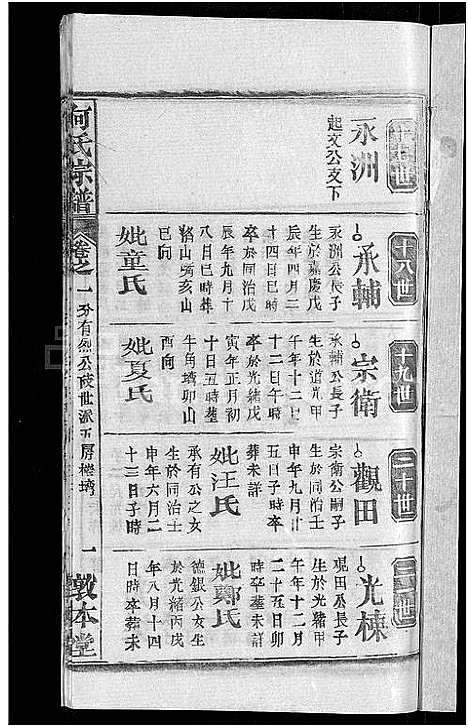 十七世
永洲
起文公支下
十八世
承輔
永洲公長子
生於嘉慶戊
辰年四月二
十四日巳時
卒於同治戊
辰年九月十
八日巳時葬
豬山癸亥山
巳向
妣童氏
十九世
宗衛
承輔公長子
生於道光甲
午年十二月
十二日午時
卒於光緒戊
寅年正月初
十日五時塟
牛角壋卯山
酉向
妣夏氏
二十世
觀田
宗衛公嗣子
生於同治壬
申年九月廿
五日子時卒
葬未詳
妣汪氏
承有公之女
生於同治壬
申年六月二
十三日子時
光棟
觀田公長子
生於光緒甲
午年十二月
二十五日卯
時卒塟未詳
妣鄭氏
德銀公女生
於光緒丙戌
年八月十四
日時卒葬未
何氏宗譜
卷之一
分有烈公陵世派五房樓塆
一
敦本堂